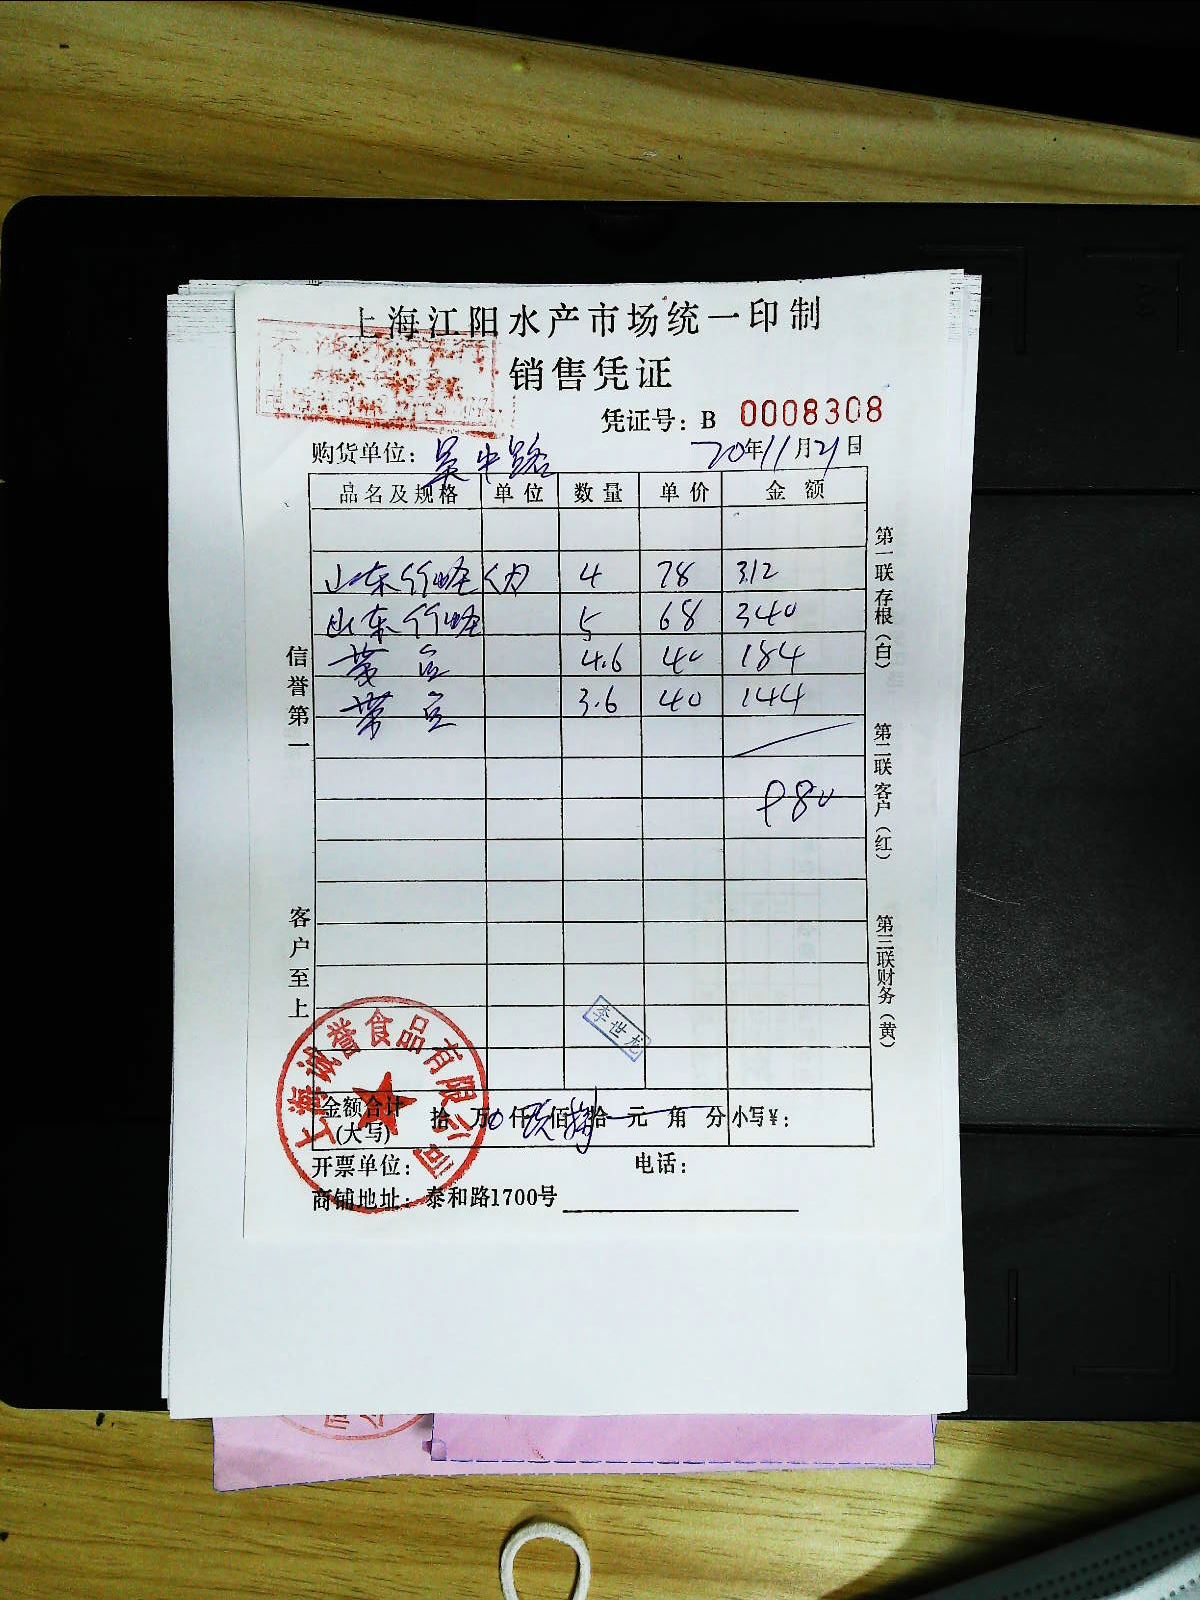 上海江阳水产市场统一印制
销售凭证
凭证号：B 0008308
购货单位：吴中路 20年11月21日
品名及规格 单位 数量 单价 金额
山东竹蛏(大) 4 78 312
山东竹蛏 5 68 340
4.6 40 184
3.6 40 144
980
信誉第一
客户至上
第一联存根（白）
第二联客户（红）
第三联财务（黄）
李世龙
上海诚誉食品有限公司
金额合计(大写) 拾 万 0 仟 玖 佰 捌 拾 元 角 分 小写¥：
开票单位： 电话：
商铺地址：泰和路1700号